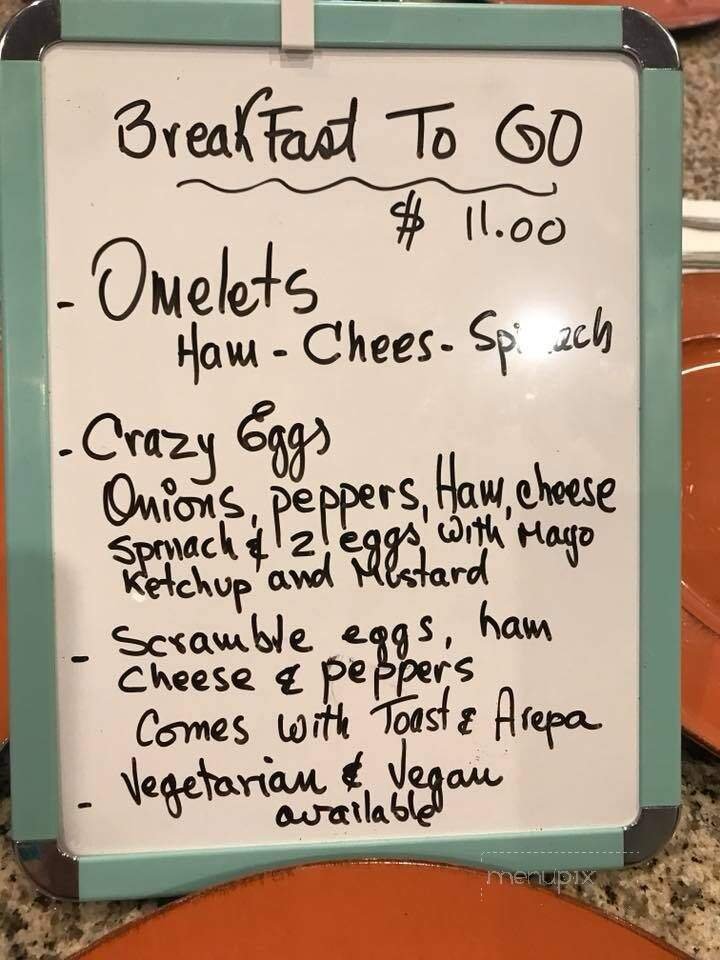 BreakFast To GO
$ 11.00
- Omelets
Ham - Chees - Spinach
- Crazy Eggs
Onions, peppers, Ham, cheese
Spinach & 2 eggs with Mayo
Ketchup and Mustard
- Scramble eggs, ham
cheese & peppers
Comes with Toast & Arepa
- Vegetarian & Vegan
available
menupix